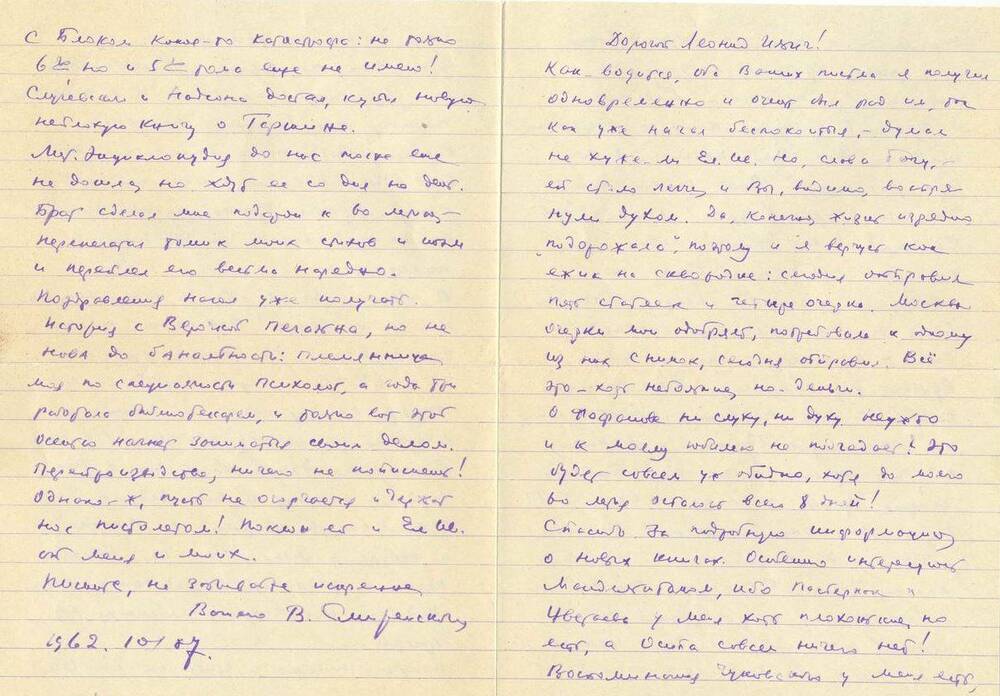 Дорогой Леонид Ильич!
Как водится, оба Ваших письма я получил
одновременно и очень был рад им, т.к.
как уже начал беспокоиться, – думал
не хуже-ли Ел. Ис. Но, слава Богу, –
ей стало легче и Вы, видимо, воспря-
нули духом. Да, конечно, жизнь изрядно
"подорожала", поэтому и я верчусь как
ежик на сковородке: сегодня отправил
пять статеек и четыре очерка. Москва
очерки мои одобряет, потребовали к одному
из них снимок, сегодня отправил. Всё
это – хоть небольшие, но – деньги.
О Фофанове ни слуху, ни духу. Неужто
и к моему юбилею не подгадает? Это
будет совсем уж обидно, хотя до моего
юбилея осталось всего 8 дней!
Спасибо за подробную информацию
о новых книгах. Особенно интересует
Мандельштам, ибо Пастернак и
Цветаева у меня хоть плохонькие, но
есть, а Осипа совсем ничего нет!
Воспоминания Чуковского у меня есть,
С Блоком какая-то катастрофа: не только
6й но и 5й тома еще не имею!
Случевского и Надсона достал, купил новую
неплохую книгу о Гаршине.
Лит. Энциклопедия до нас пока еще
не дошла, но ждут ее со дня на день.
Брат сделал мне подарок к юбилею –
перепечатал томик моих стихов и
и переплел его весьма нарядно.
Поздравления начал уже получать.
История с Верочкой печальна, но не
нова до банальности: племянница
моя по специальности психолог, а года три
работала библиотекарем, и только вот этой
осенью начнет заниматься своим делом.
Перепроизводство, ничего не попишешь!
Однако-ж, пусть не огорчается и держит
нос пистолетом! Поклон ей и Ел. Ис.
от меня и моих.
Пишите, не забывайте искренне
Вашего В. Смиренского
1962.